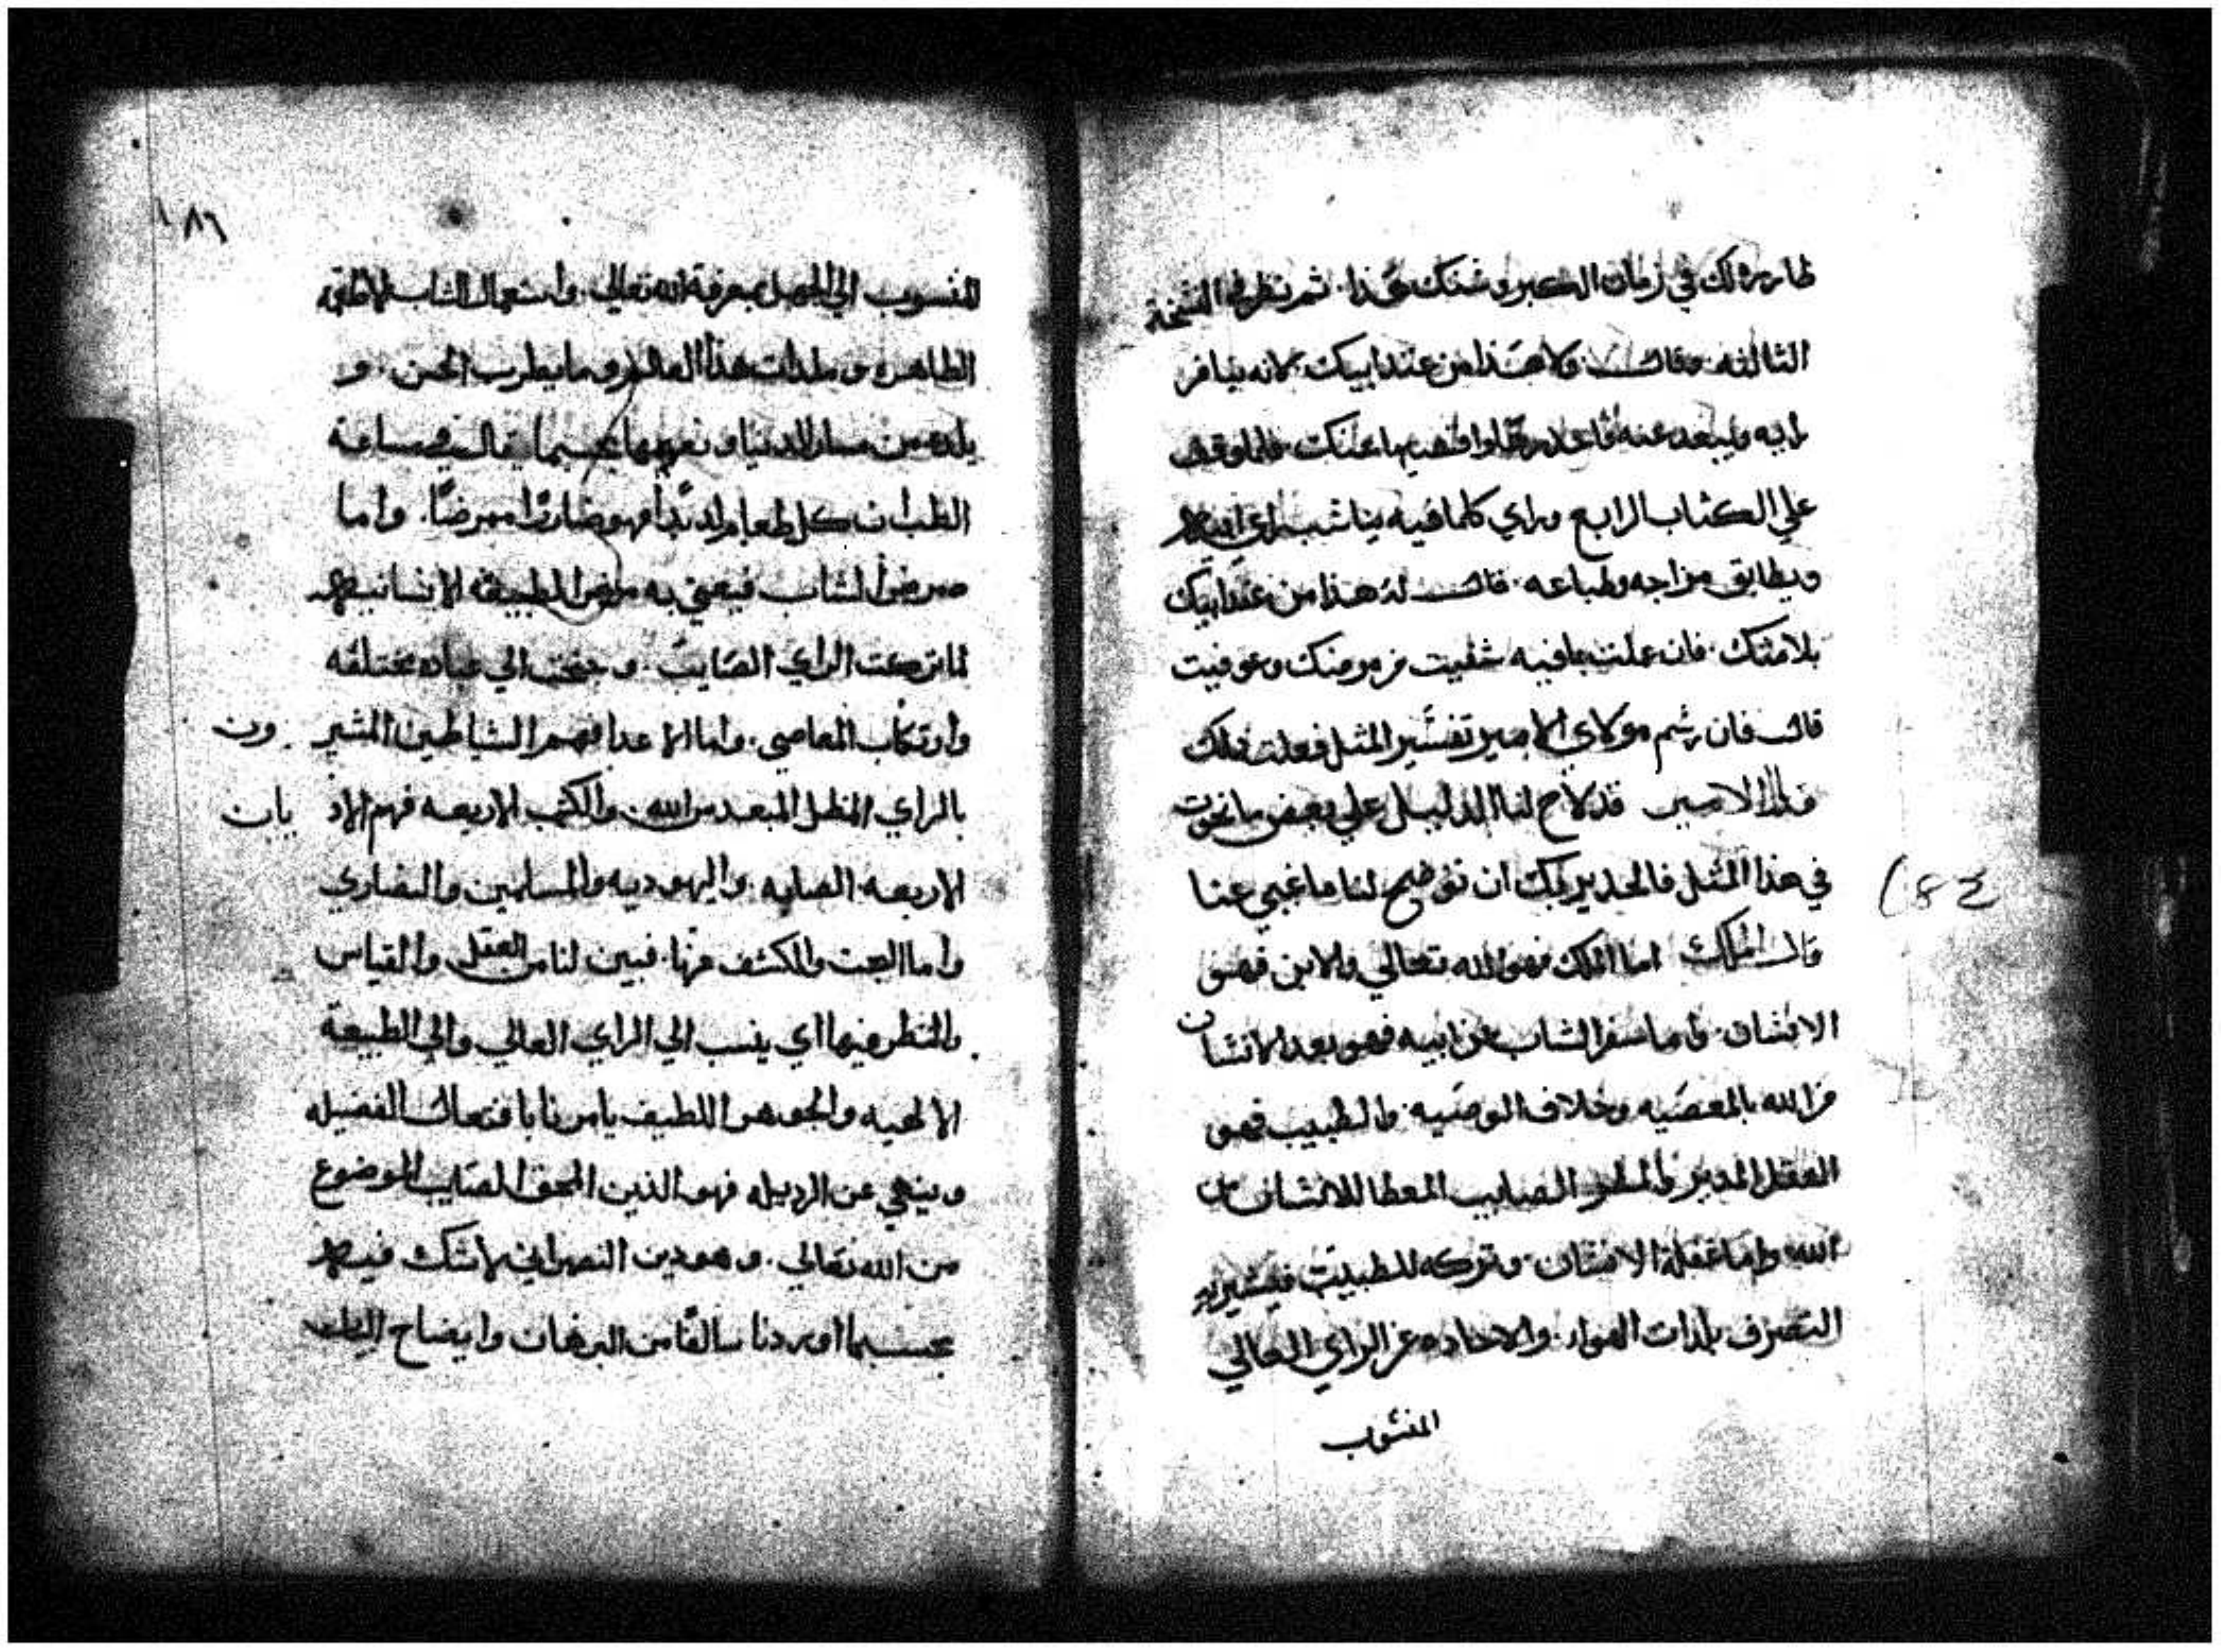 ذلك في زمان ثم نظر في النسخة
الثالثه وقال ولا هذا من عند ابيك لانه ينافر
رايه ويبعد عنه فلما وقف
علي الكتاب الرابع وراي كلما فيه يناسب راي ابيه
ويطابق مزاجه وطباعه قال له هذا من عند ابيك
بلا شك فان عملت بما فيه شفيت من مرضك وعوفيت
قال فان رسم مولاي الامير تفسير المثل فعلت ذلك
قال الامير قد لاح لنا الدليل علي بعض ما نحوت
في هذا المثل فالجدير بك ان توضح لنا ما غبي عنا
182
قال الملك اما الملك فهو الله تعالي والابن فهو
الانسان واما سفر الشاب عن ابيه فهو بعد الانسان
من الله بالمعصيه وخلاف الوصيه والطبيب فهو
العقل المدبر الصايب المعطا للانسان من
الله واما غفلة الانسان وتركه للطبيب فيشير به
التصرف بلذات والاحاده عن الراي العالي
المنسوب
١٨٢
المنسوب الي معرفة الله تعالي واستعمال الشاب الاطعمة
الظاهره ملذات هذا العالم وما يطرب الحس و
يلده من مسار الدنيا ونعيمها بحسبما يقال في صناعة
الطب ان كل طعام لديدا فهو ضارا ممرضا واما
مرض الشاب فيعني به مرض الطبيعه الانسانيه
لما تركت الراي الصايب وجنحت الي عباده مختلفه
وارتكاب المعاصي واما الاعدا فهم الشياطين المشير ون
بالراي المظل المبعد من الله والكتب الاربعه فهم الاد يان
الاربعه الصابه واليهوديه والمسلمين والنصاري
واما البحت والكشف عنها فبين لنا من العقل والقياس
والنظر فيها اي ينسب الي الراي العالي والي الطبيعة
الالهيه والجوهر اللطيف يامرنا بافتعال الفضيله
وينهي عن الرديله فهو الدين المحق الصايب الموضوع
من الله تعالي وهو دين النصرانيه لاشك فيه
بحسبما اوردنا سالفا من البرهان وايضاح